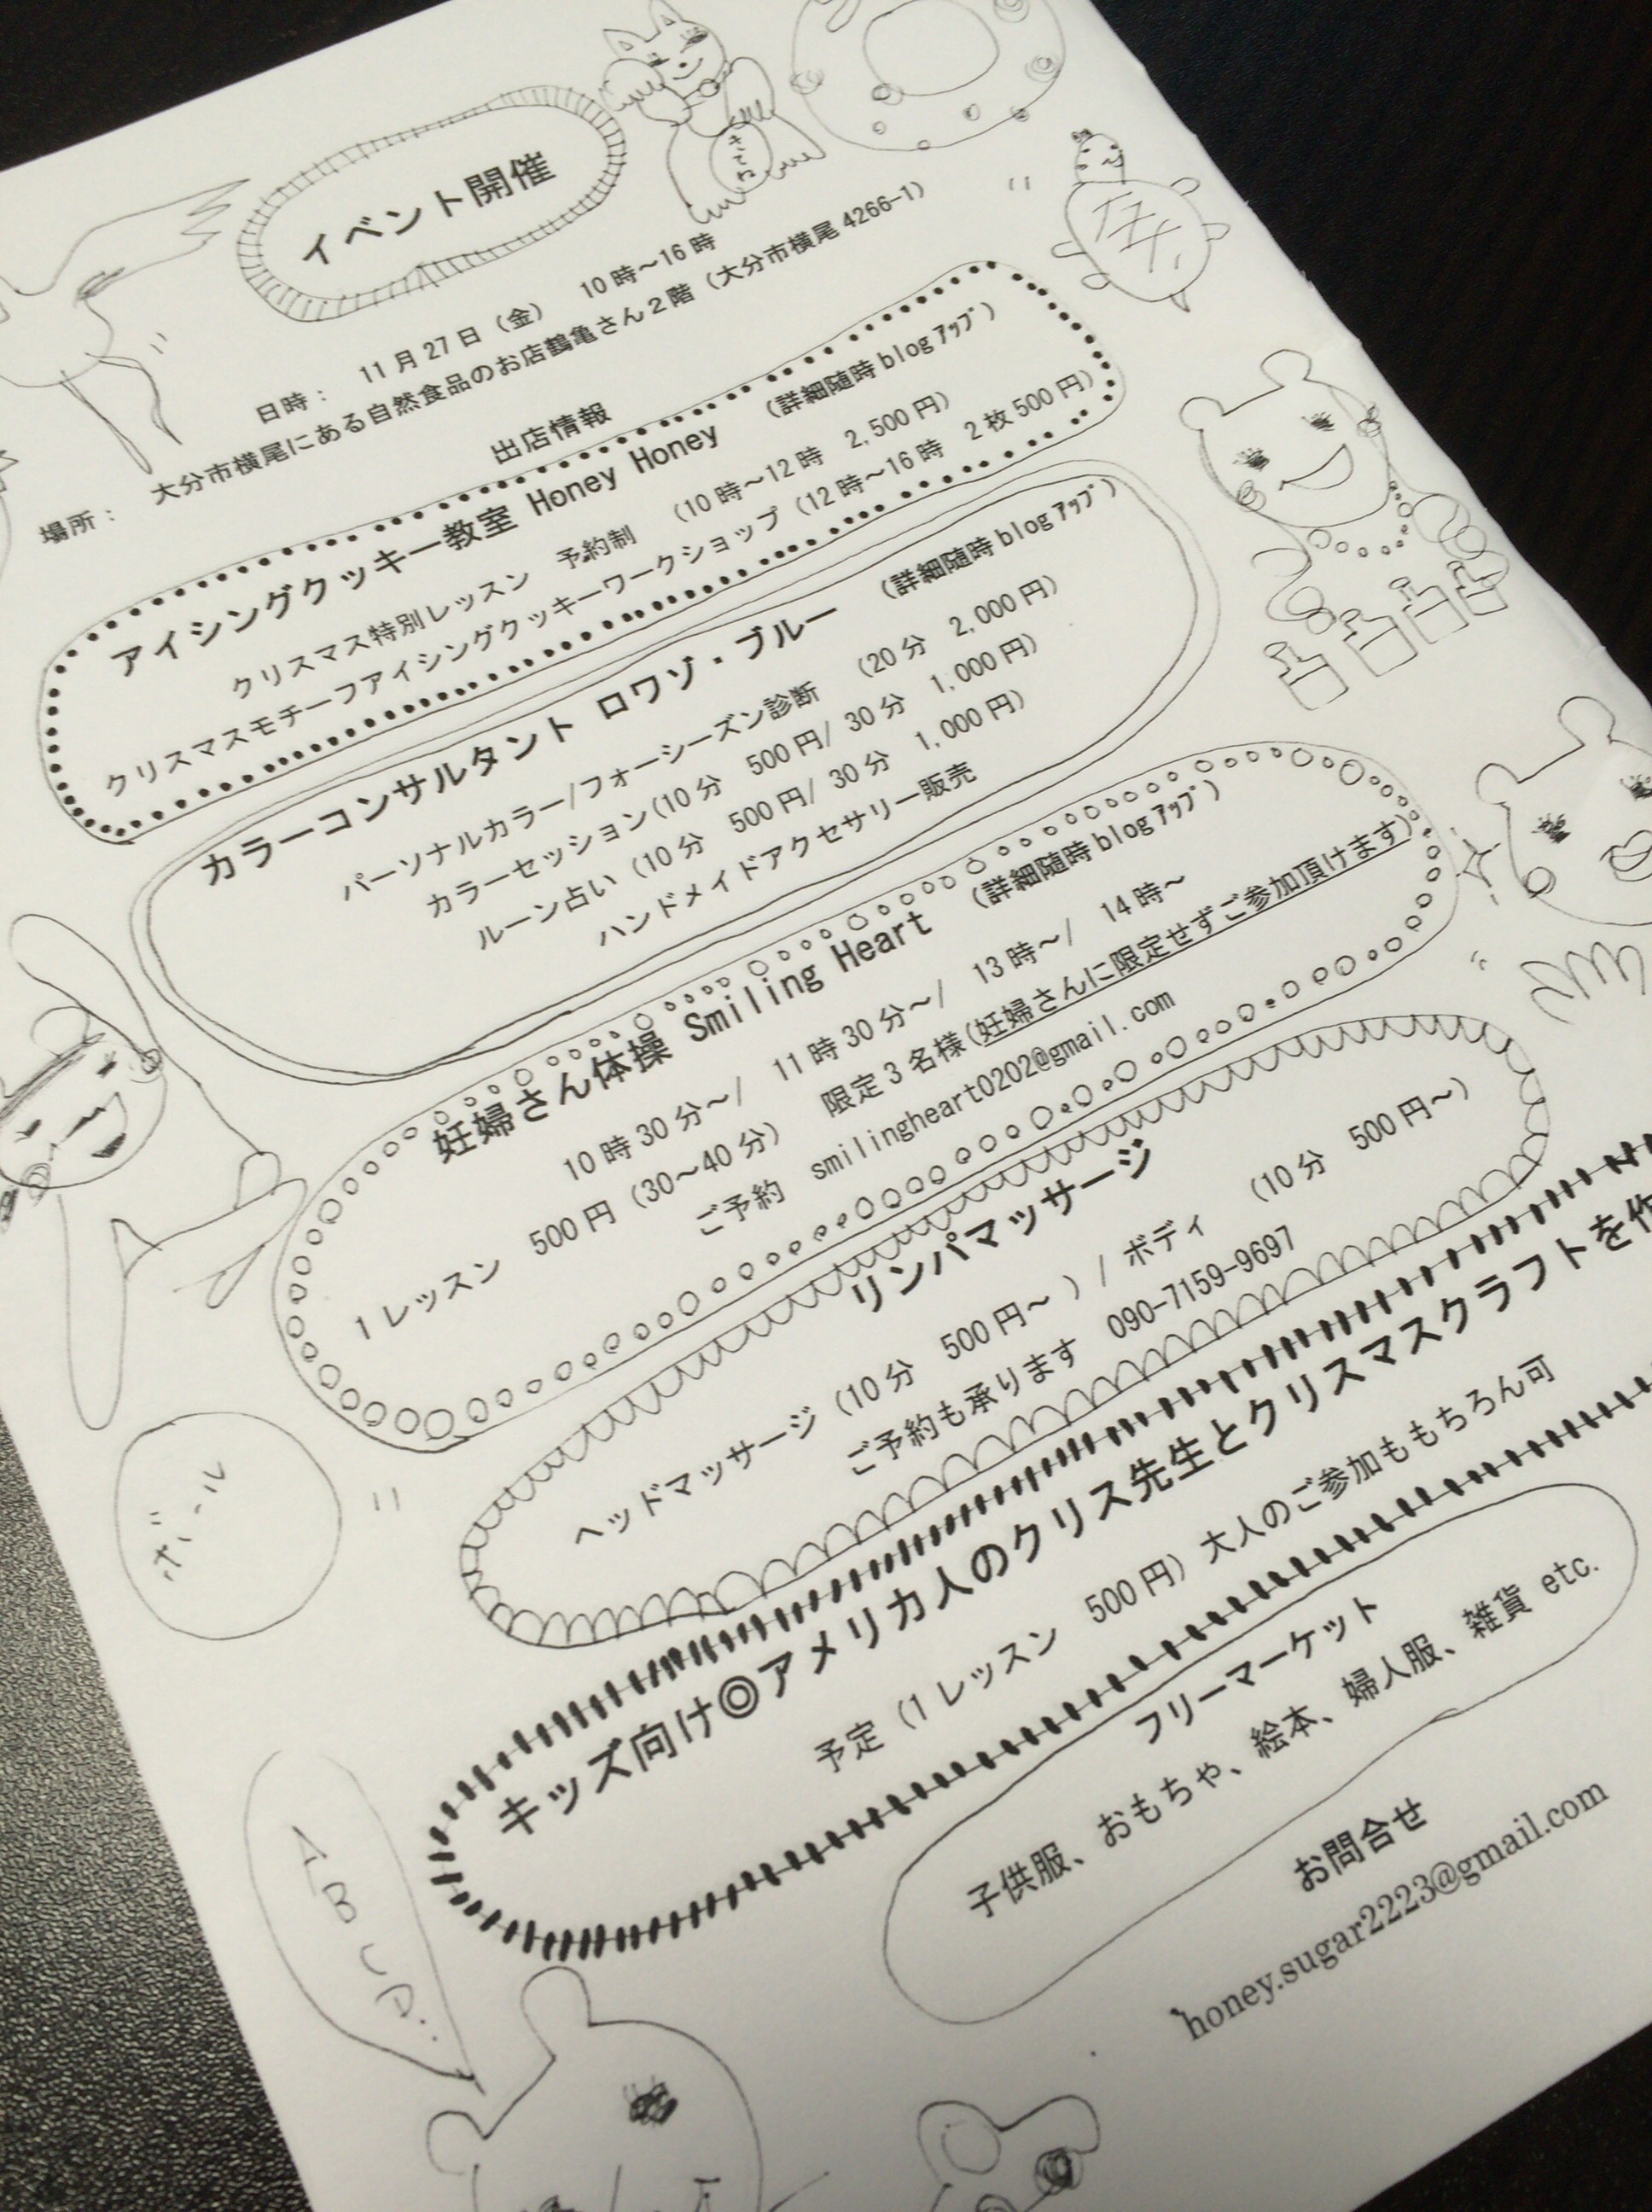 イベント開催
日時： 11月27日（金） 10時～16時
場所： 大分市横尾にある自然食品のお店鶴亀さん２階（大分市横尾4266-1）
出店情報
アイシングクッキー教室 Honey Honey （詳細随時blogｱｯﾌﾟ）
クリスマス特別レッスン 予約制 （10時～12時 2,500円）
クリスマスモチーフアイシングクッキーワークショップ（12時～16時 2枚500円）
カラーコンサルタント ロワゾ・ブルー （詳細随時blogｱｯﾌﾟ）
パーソナルカラー/フォーシーズン診断 （20分 2,000円）
カラーセッション（10分 500円/ 30分 1,000円）
ルーン占い（10分 500円/ 30分 1,000円）
ハンドメイドアクセサリー販売
妊婦さん体操 Smiling Heart （詳細随時blogｱｯﾌﾟ）
10時30分～/ 11時30分～/ 13時～/ 14時～
1レッスン 500円（30～40分） 限定3名様（妊婦さんに限定せずご参加頂けます）
ご予約 smilingheart0202@gmail.com
リンパマッサージ
ヘッドマッサージ（10分 500円～ ）/ ボディ （10分 500円～）
ご予約も承ります 090-7159-9697
ボール
キッズ向け◎アメリカ人のクリス先生とクリスマスクラフトを作
予定（1レッスン 500円）大人のご参加ももちろん可
フリーマーケット
子供服、おもちゃ、絵本、婦人服、雑貨 etc.
A B C D..
お問合せ
honey.sugar2223@gmail.com